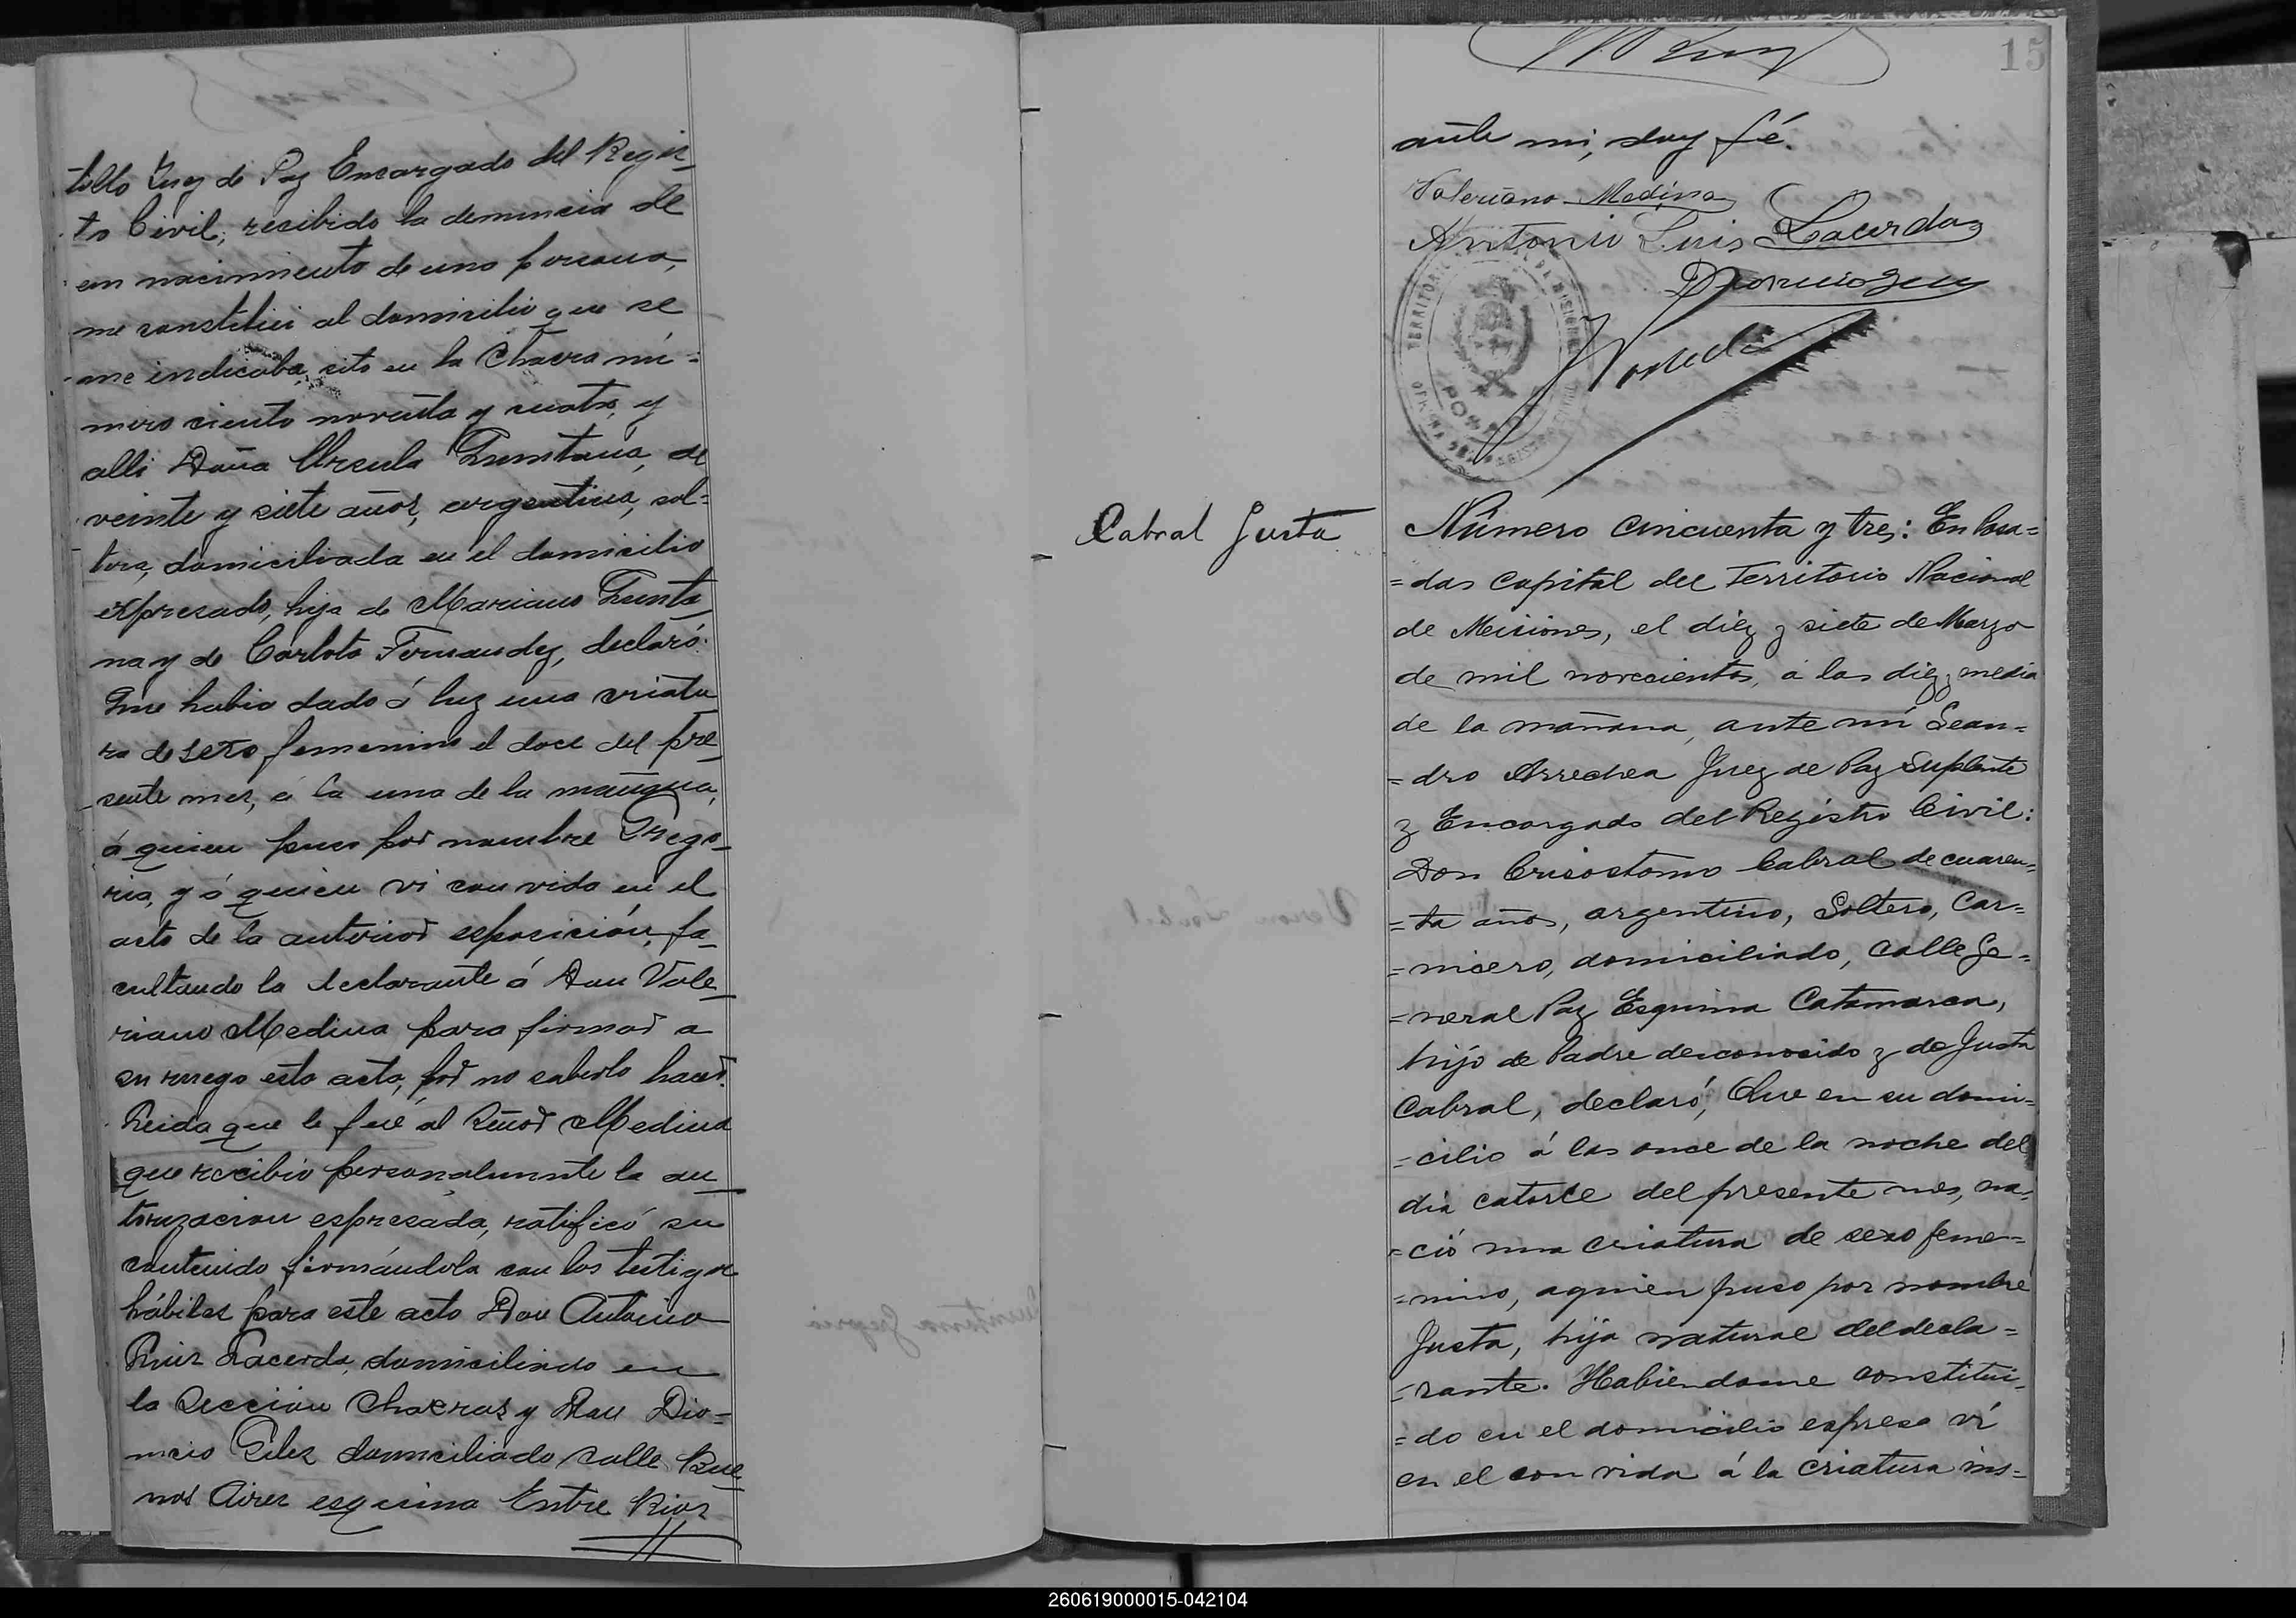 tillo Juez de Paz Encargado del Regis
tro Civil, recibido la denuncia de
un nacimiento de una persona,
me constitui al domicilio que se
me indicaba, sito en la Chacra nú-
mero ciento noventa y cuatro, y
alli Doña Ursula Quintana, de
veinte y siete años, argentina, sol=
tera, domiciliada en el domicilio
expresado, hija de Mariano Quinta
na y de Carlota Fernandez, declaró:
Que habia dado á luz una criatu
ra de sexo femenino el doce del pre
sente mes, á la una de la mañana,
á quien puso por nombre Grego
ria, y á quien vi con vida en el
acto de la anterior esposición, fa
cultando la declarante á Don Vale
riano Medina para firmar a
su ruego esta acta, por no saberlo hacer.
Leida que le fué al Señor Medina
que recibio personalmente la au
torizacion espresada, ratificó su
contenido firmándola con los testigos
hábiles para este acto Don Antonio
Luis Lacerda, domiciliado en
la Seccion Chacras y Don Dio=
nicio Gilez domiciliado calle Bue
nos Aires esquina Entre Rios
15
ante mi, doy fé.
Valeriano Medina
Antonio Luis Lacerda
TERRITORIO DE MISIONES
POSADAS
Cabral Justa
Número cincuenta y tres: En Posa=
=das Capital del Territorio Nacional
de Misiones, el diez y siete de Marzo
de mil novecientos, á las diez y media
de la mañana, ante mí Lean=
=dro Arrechea Juez de Paz Suplente
y Encargado del Registro Civil:
Don Crisostomo Cabral de cuaren=
=ta años, argentino, Soltero, Car=
=nicero, domiciliado, calle Ge=
=neral Paz Esquina Catamarca,
hijo de Padre desconocido y de Justa
Cabral, declaró, Que en su domi=
=cilio á las once de la noche del
dia catorce del presente mes, na=
=ció una criatura de sexo feme=
=nino, aquien puso por nombre
Justa, hija natural del decla=
=rante. Habiendome constitui=
=do en el domicilio espreso ví
en el con vida á la criatura ins=
260619000015-042104